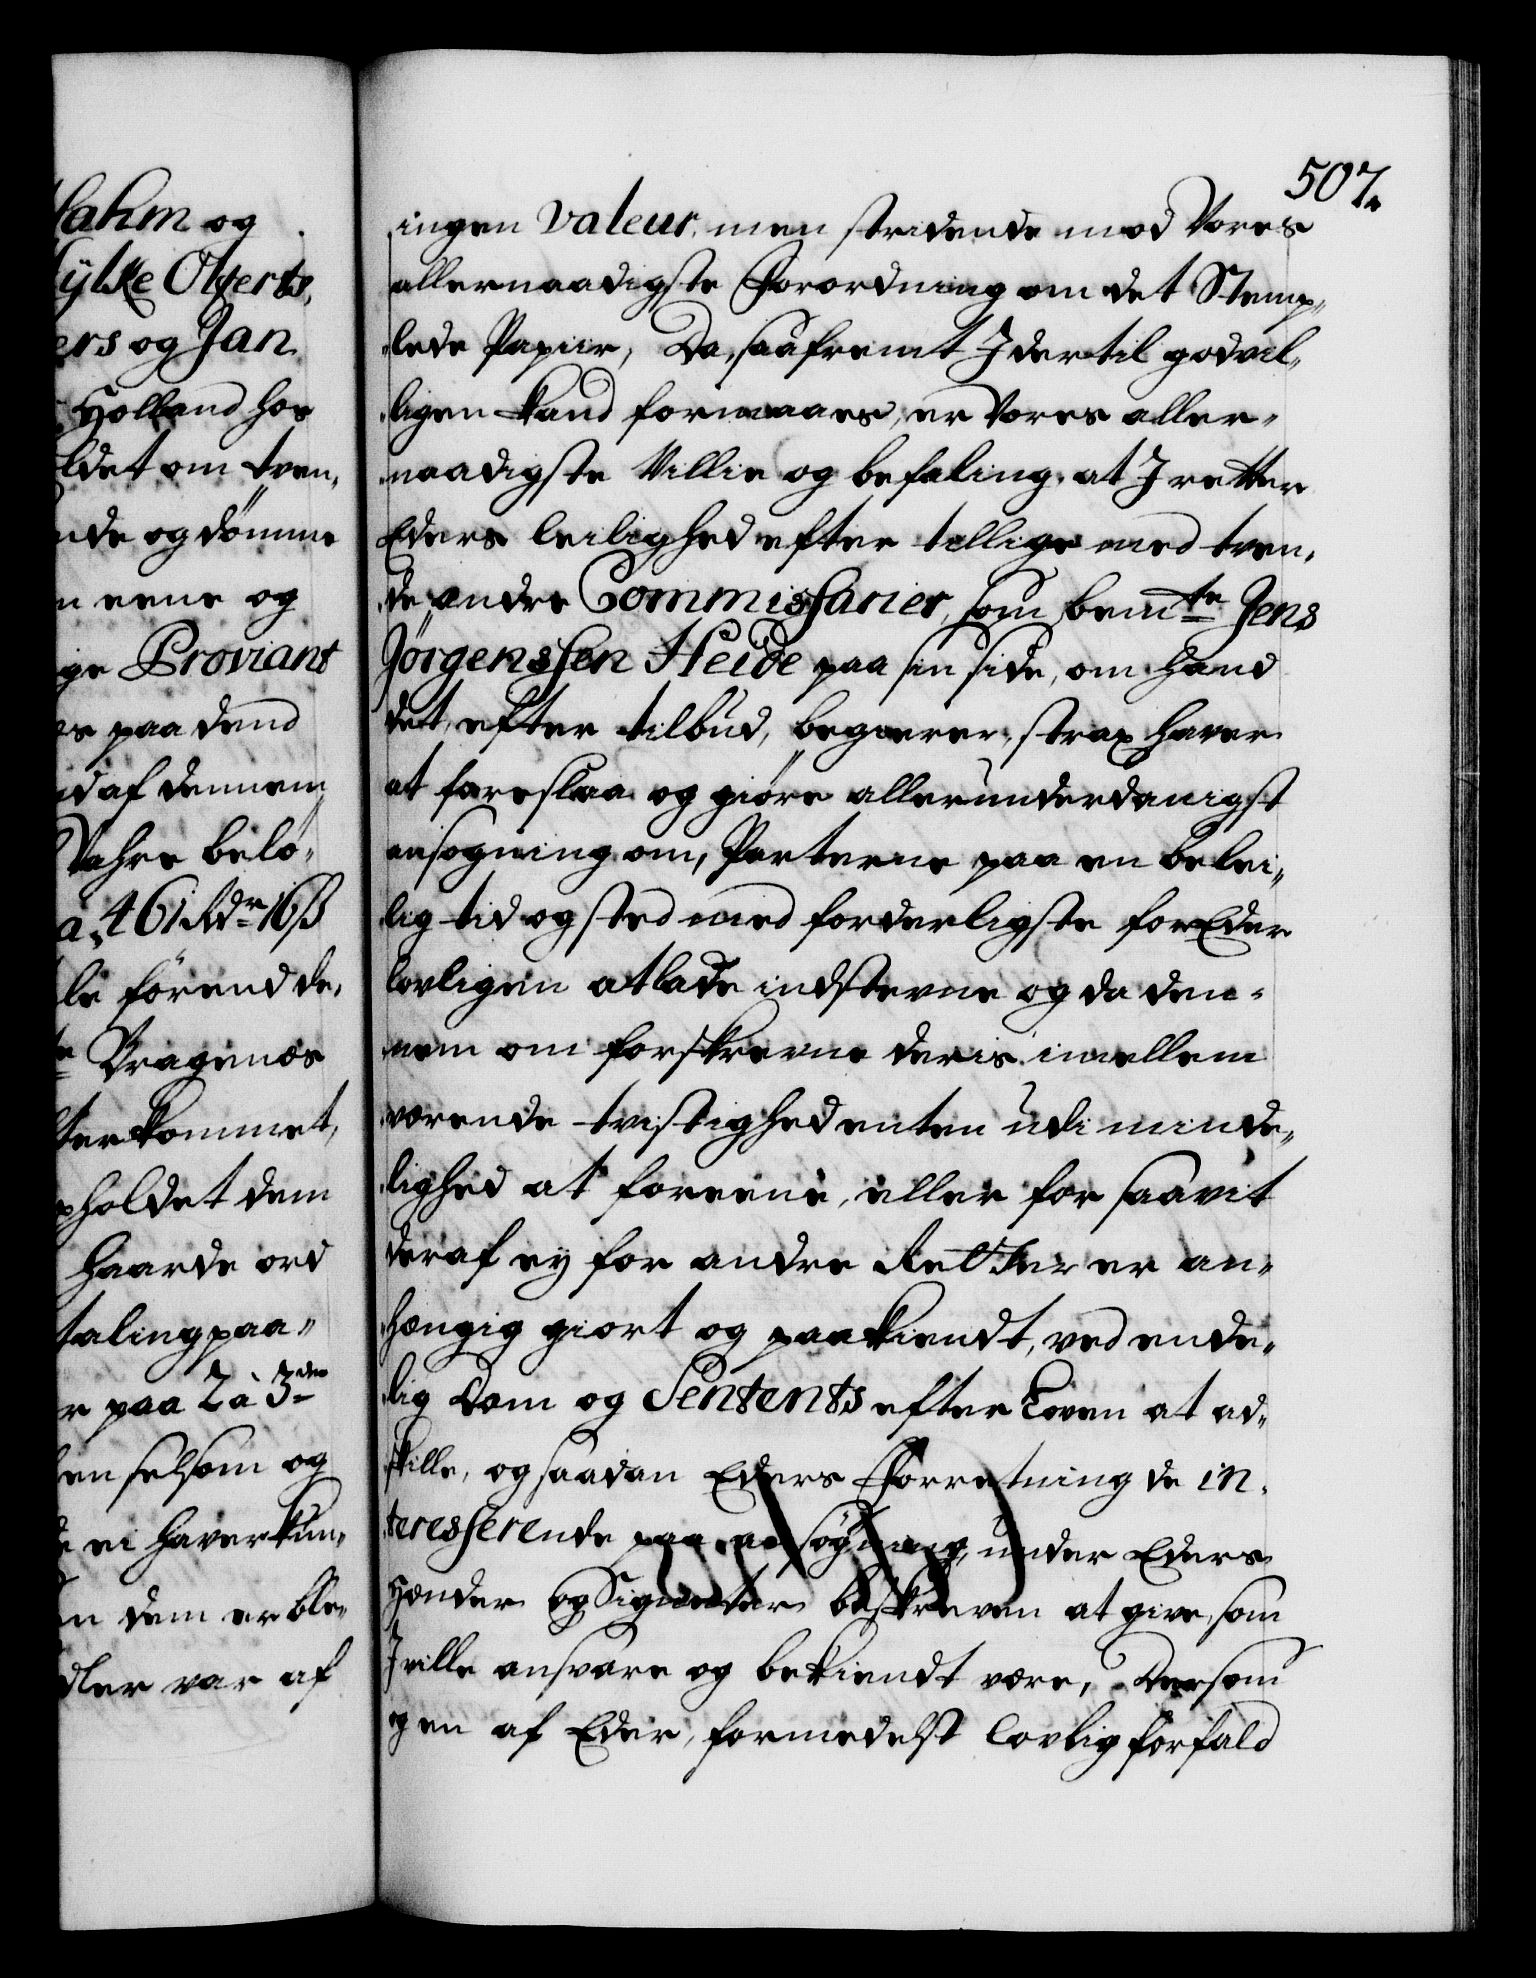 507.
ingen Valeur, men stridende mod Vores
allernaadigste Forordning om det Stemp„
lede Papiir, Da, saafremt I dertil godvil„
ligen kand formaaes, er Vores aller„
naadigste Villie og befaling, at I retter
Eders leilighed efter tillige med tven„
de andre Commissarier, som bemte Jens
Jørgenssen Heide paa sin side, om hand
det, efter tilbud, begærer, strax haver
at foreslaa og giøre allerunderdanigst
ansøgning om, Parterne paa en belei„
lig tid og sted med forderligste for Eder
lovligen at lade indstevne og da den„
nem om forskrevne deris imellem
værende tvistighed enten udi minde„
lighed at foreene, eller for saavit
deraf ey for andre Retter er an„
hængig giort og paakiendt, ved ende„
lig Dom og Sentents efter Loven at ad„
skille, og saadan Eders Forretning de in„
teresserende paa ansøgning, under Eders
Hænder og Signeter beskreven at give, som
I ville ansvare og bekiendt være, Dersom
og en af Eder, formedelst lovlig forfald
Hahm og
Hylke Olferts,
ers og Jan
Holland hos
ldet om tven„
nde og dømme
n eene og
ge Proviant
es paa dend
id af dennem
Vahre belø„
a, 461 Rdr 16 ß
le førend de„
Bragenæs
ter kommet,
pholdet dem
haarde ord
taling paa„
r paa 2 à 3de
en selsom og
e ei haver kun„
n dem er ble„
dler var af